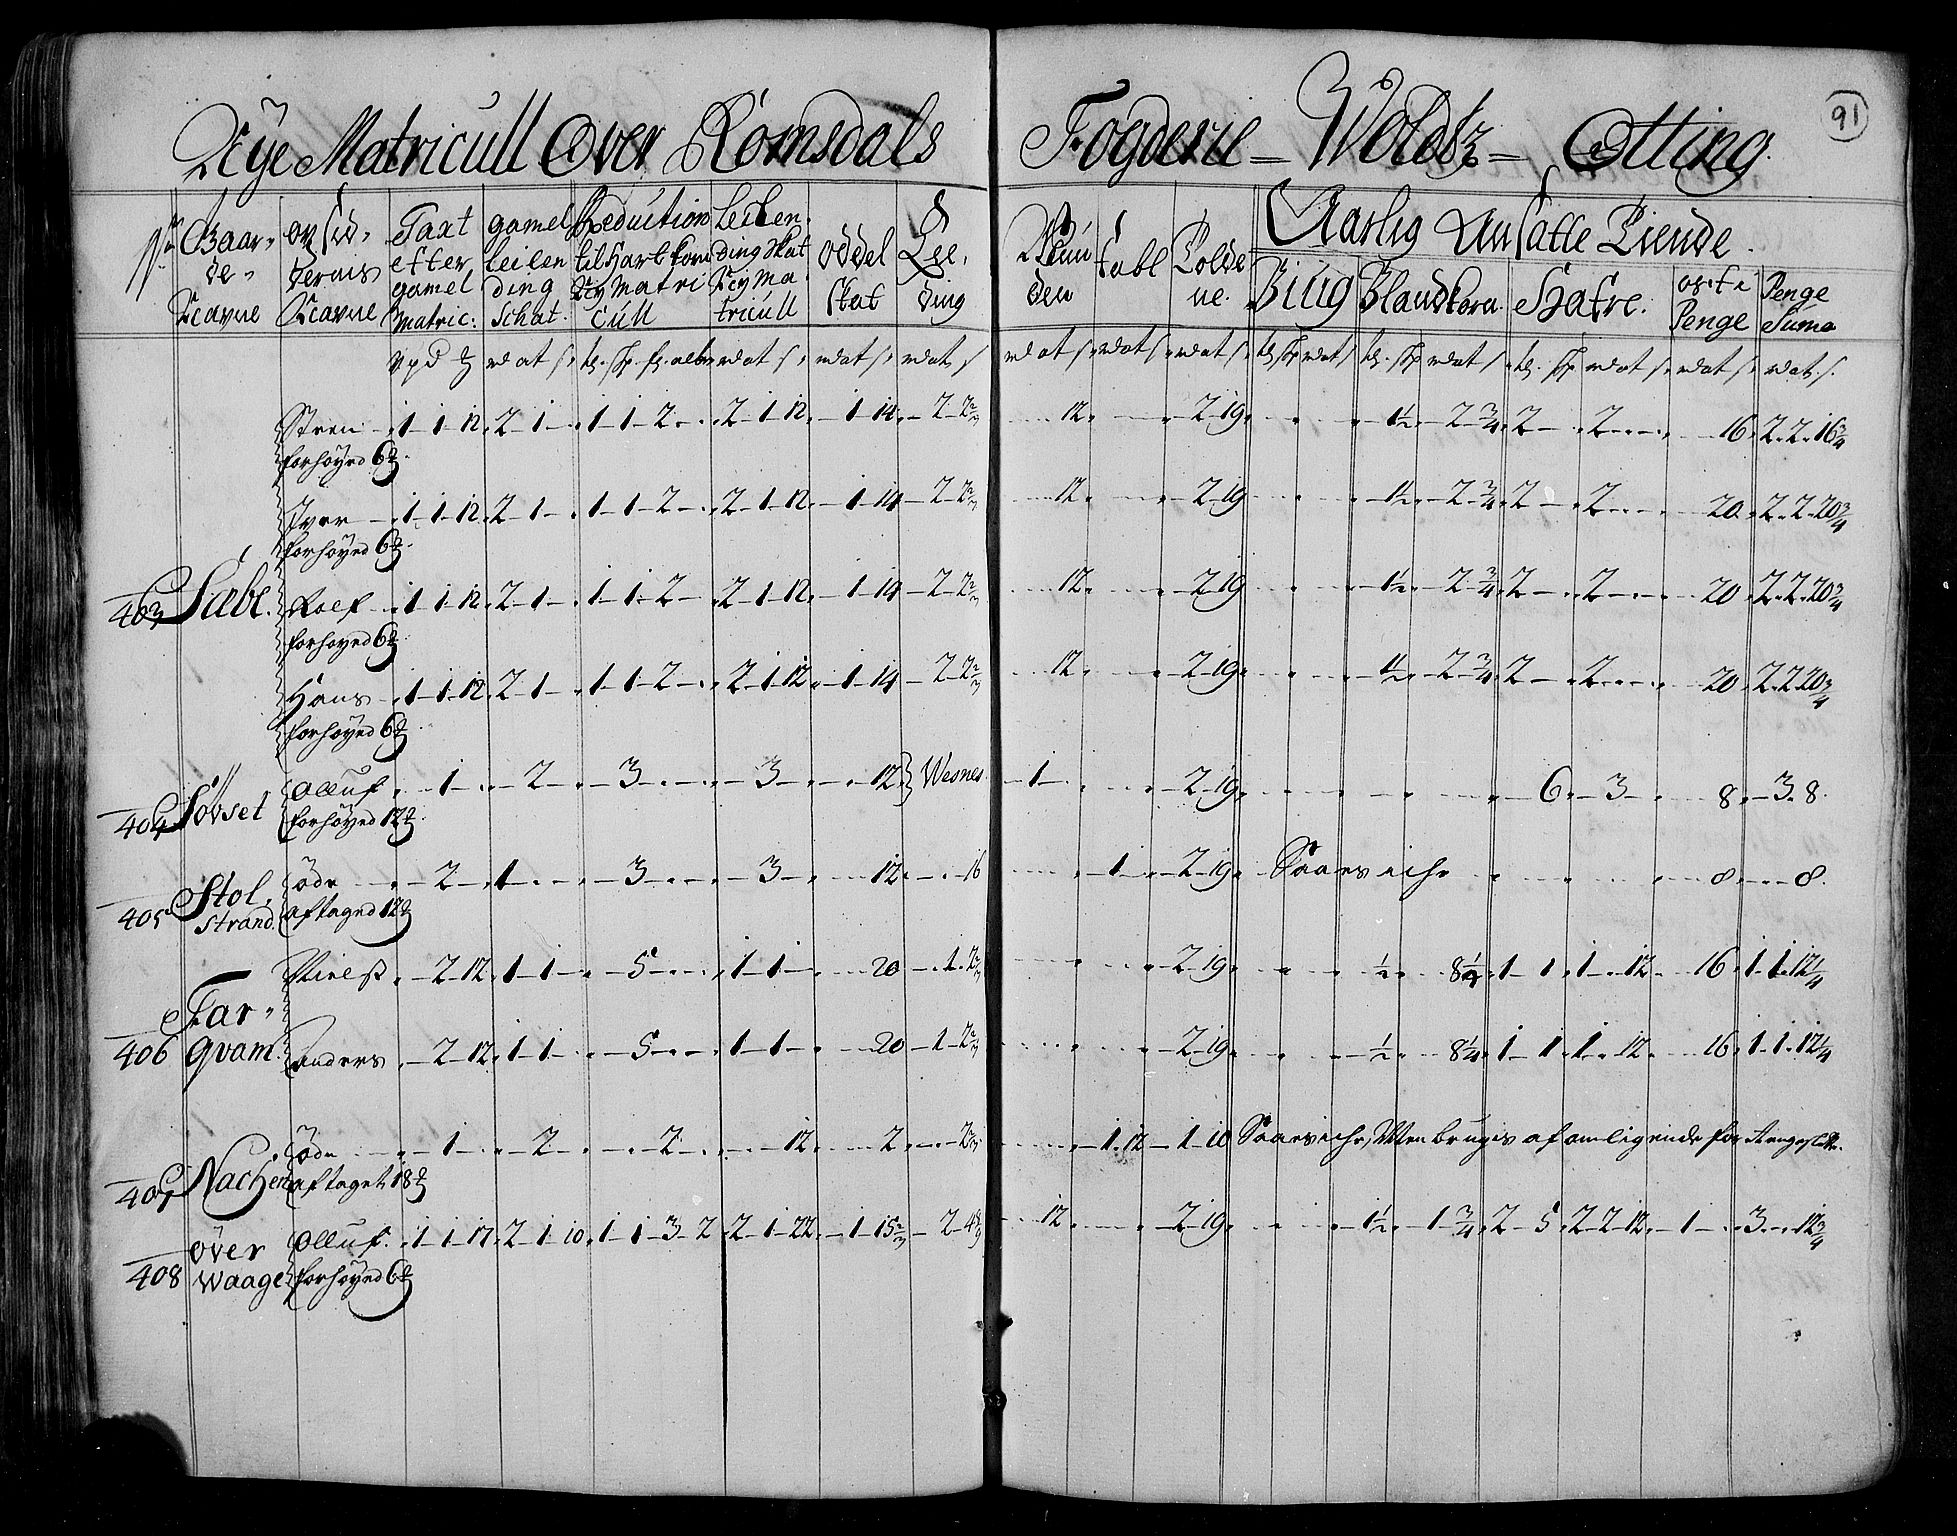 Nye Matricull Over Romsdals Fogderie - Woldtz - Otting. 91
No. Gaar- de- Navne | opsid- dernis Navne | Taxt efter gamel Matric: | gamel leilen ding Schat. | Reduction til Hart korn Ny Matri cull | Leilen- ding skat Ny Ma- tricull | oddel skat | Lee- ding | | tabl | | Aarlig Ansatte Tiende.
Biug | Blandkorn | Hafre. | oste Penge | Penge Suma
Sten 1-1-12 2-1- 1-1-2 2-1-12 1-14 2-2 2/3 12 2-19 1½ 2¾ 2 2 16 2-2-16¾
forhøyed 6
Iver 1-1-12 2-1- 1-1-2 2-1-12 1-14 2-2 2/3 12 2-19 1½ 2¾ 2 2 20 2-2-20¾
forhøyed 6
403 Sæbe. Roel 1-1-12 2-1- 1-1-2 2-1-12 1-14 2-2 2/3 12 2-19 1½ 2¾ 2 2 20 2-2-20¾
forhøyed 6
Hans 1-1-12 2-1- 1-1-2 2-1-12 1-14 2-2 2/3 12 2-19 1½ 2¾ 2 2 20 2-2-20¾
forhøyed 6
404 Søvset Olluf 1 2 3 3 12 Wesnes 1 2-19 6 3 8 3-8
forhøyed 12
405 Stol- strand øde 2 1 3 3 12 16 1 2-19 8 8
aftaged 12
Nielß 2-12 1-1 5 1-1 20 1-2 2/3 2-19 ½ 8¼ 1-1 1-12 16 1-1-12¼
406 Far- qvam. Anders 2-12 1-1 5 1-1 20 1-2 2/3 2-19 ½ 8¼ 1-1 1-12 16 1-1-12¼
407 Nachen øde 1 2 2 12 2 2 2/3 1-12 1-10
aftaget 18
408 øver Waage Olluf 1-1-17 2-1-10 1-1-3-2 2-1-22 1-15 2/3 2-4 8/9 12 2-19 1½ 1¾ 2-5 2-2-12 1 3-12¾
forhøyed 6